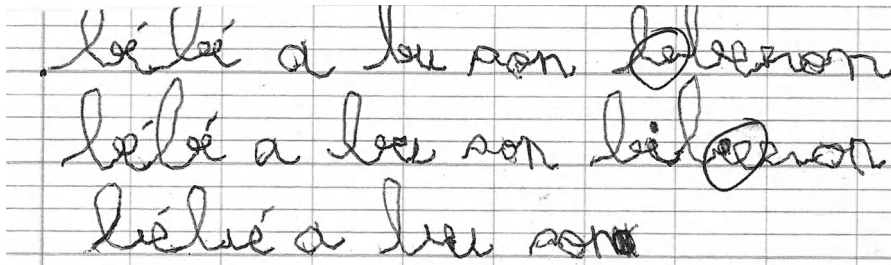 bébé a bu son beberon
bébé a bu son biberon
bébé a bu son